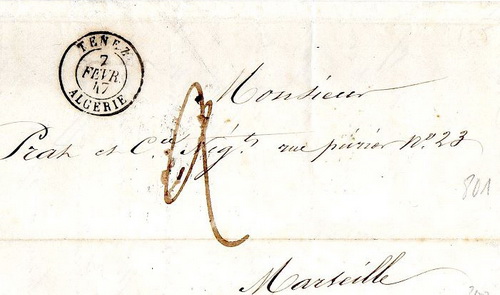 TENEZ
7
FEVR.
47
ALGERIE
Monsieur
Prat et Cie Négts rue périer No. 23
801
Marseille